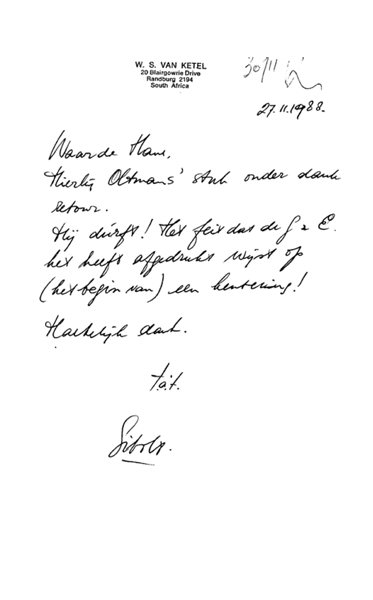 W. S. VAN KETEL
20 Blairgowrie Drive
Randburg 2194
South Africa
30/11
27.11.1988.
Waarde Hans,
Hierbij Oltmans' stuk onder dank
retour.
Hij durft! Het feit dat de G & E.
het heeft afgedrukt wijst op
(het begin van) een kentering!
Hartelijk dank.
t.à.t.
Sibolt.